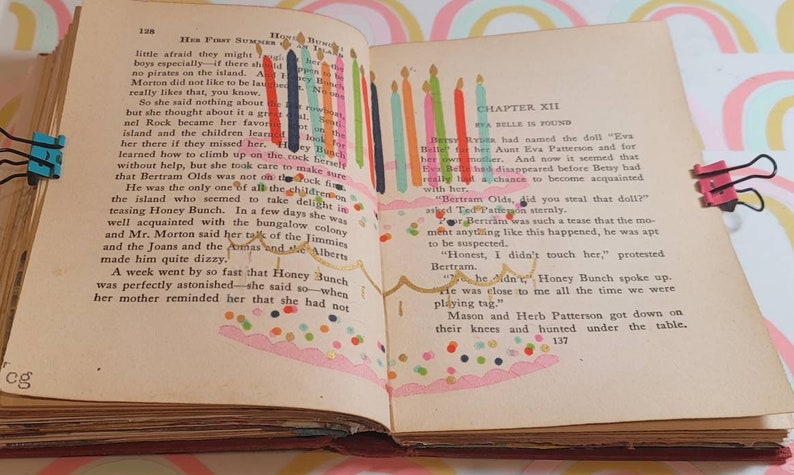 128 HONEY BUNCH:
HER FIRST SUMMER ON AN ISLAND
little afraid they might laugh at her—the
boys especially—if there should happen to be
no pirates on the island. And Honey Bunch
Morton did not like to be laughed at. No one
really likes that, you know.
So she said nothing about the rowboat,
but she thought about it a great deal. Senti-
nel Rock became her favorite spot on the
island and the children learned to look for
her there if they missed her. Honey Bunch
learned how to climb up on the rock herself
without help, but she took care to make sure
that Bertram Olds was not on the rock first.
He was the only one of all the children on
the island who seemed to take delight in
teasing Honey Bunch. In a few days she was
well acquainted with the bungalow colony
and Mr. Morton said her talk of the Jimmies
and the Joans and the Annas and the Alberts
made him quite dizzy.
A week went by so fast that Honey Bunch
was perfectly astonished—she said so—when
her mother reminded her that she had not
cg
CHAPTER XII
EVA BELLE IS FOUND
BETSY RYDER had named the doll "Eva
Belle" for her Aunt Eva Patterson and for
her own mother. And now it seemed that
Eva Belle had disappeared before Betsy had
really had a chance to become acquainted
with her.
"Bertram Olds, did you steal that doll?"
asked Ted Patterson sternly.
Poor Bertram was such a tease that the mo-
ment anything like this happened, he was apt
to be suspected.
"Honest, I didn't touch her," protested
Bertram.
"No, he didn't," Honey Bunch spoke up.
"He was close to me all the time we were
playing tag."
Mason and Herb Patterson got down on
their knees and hunted under the table.
137